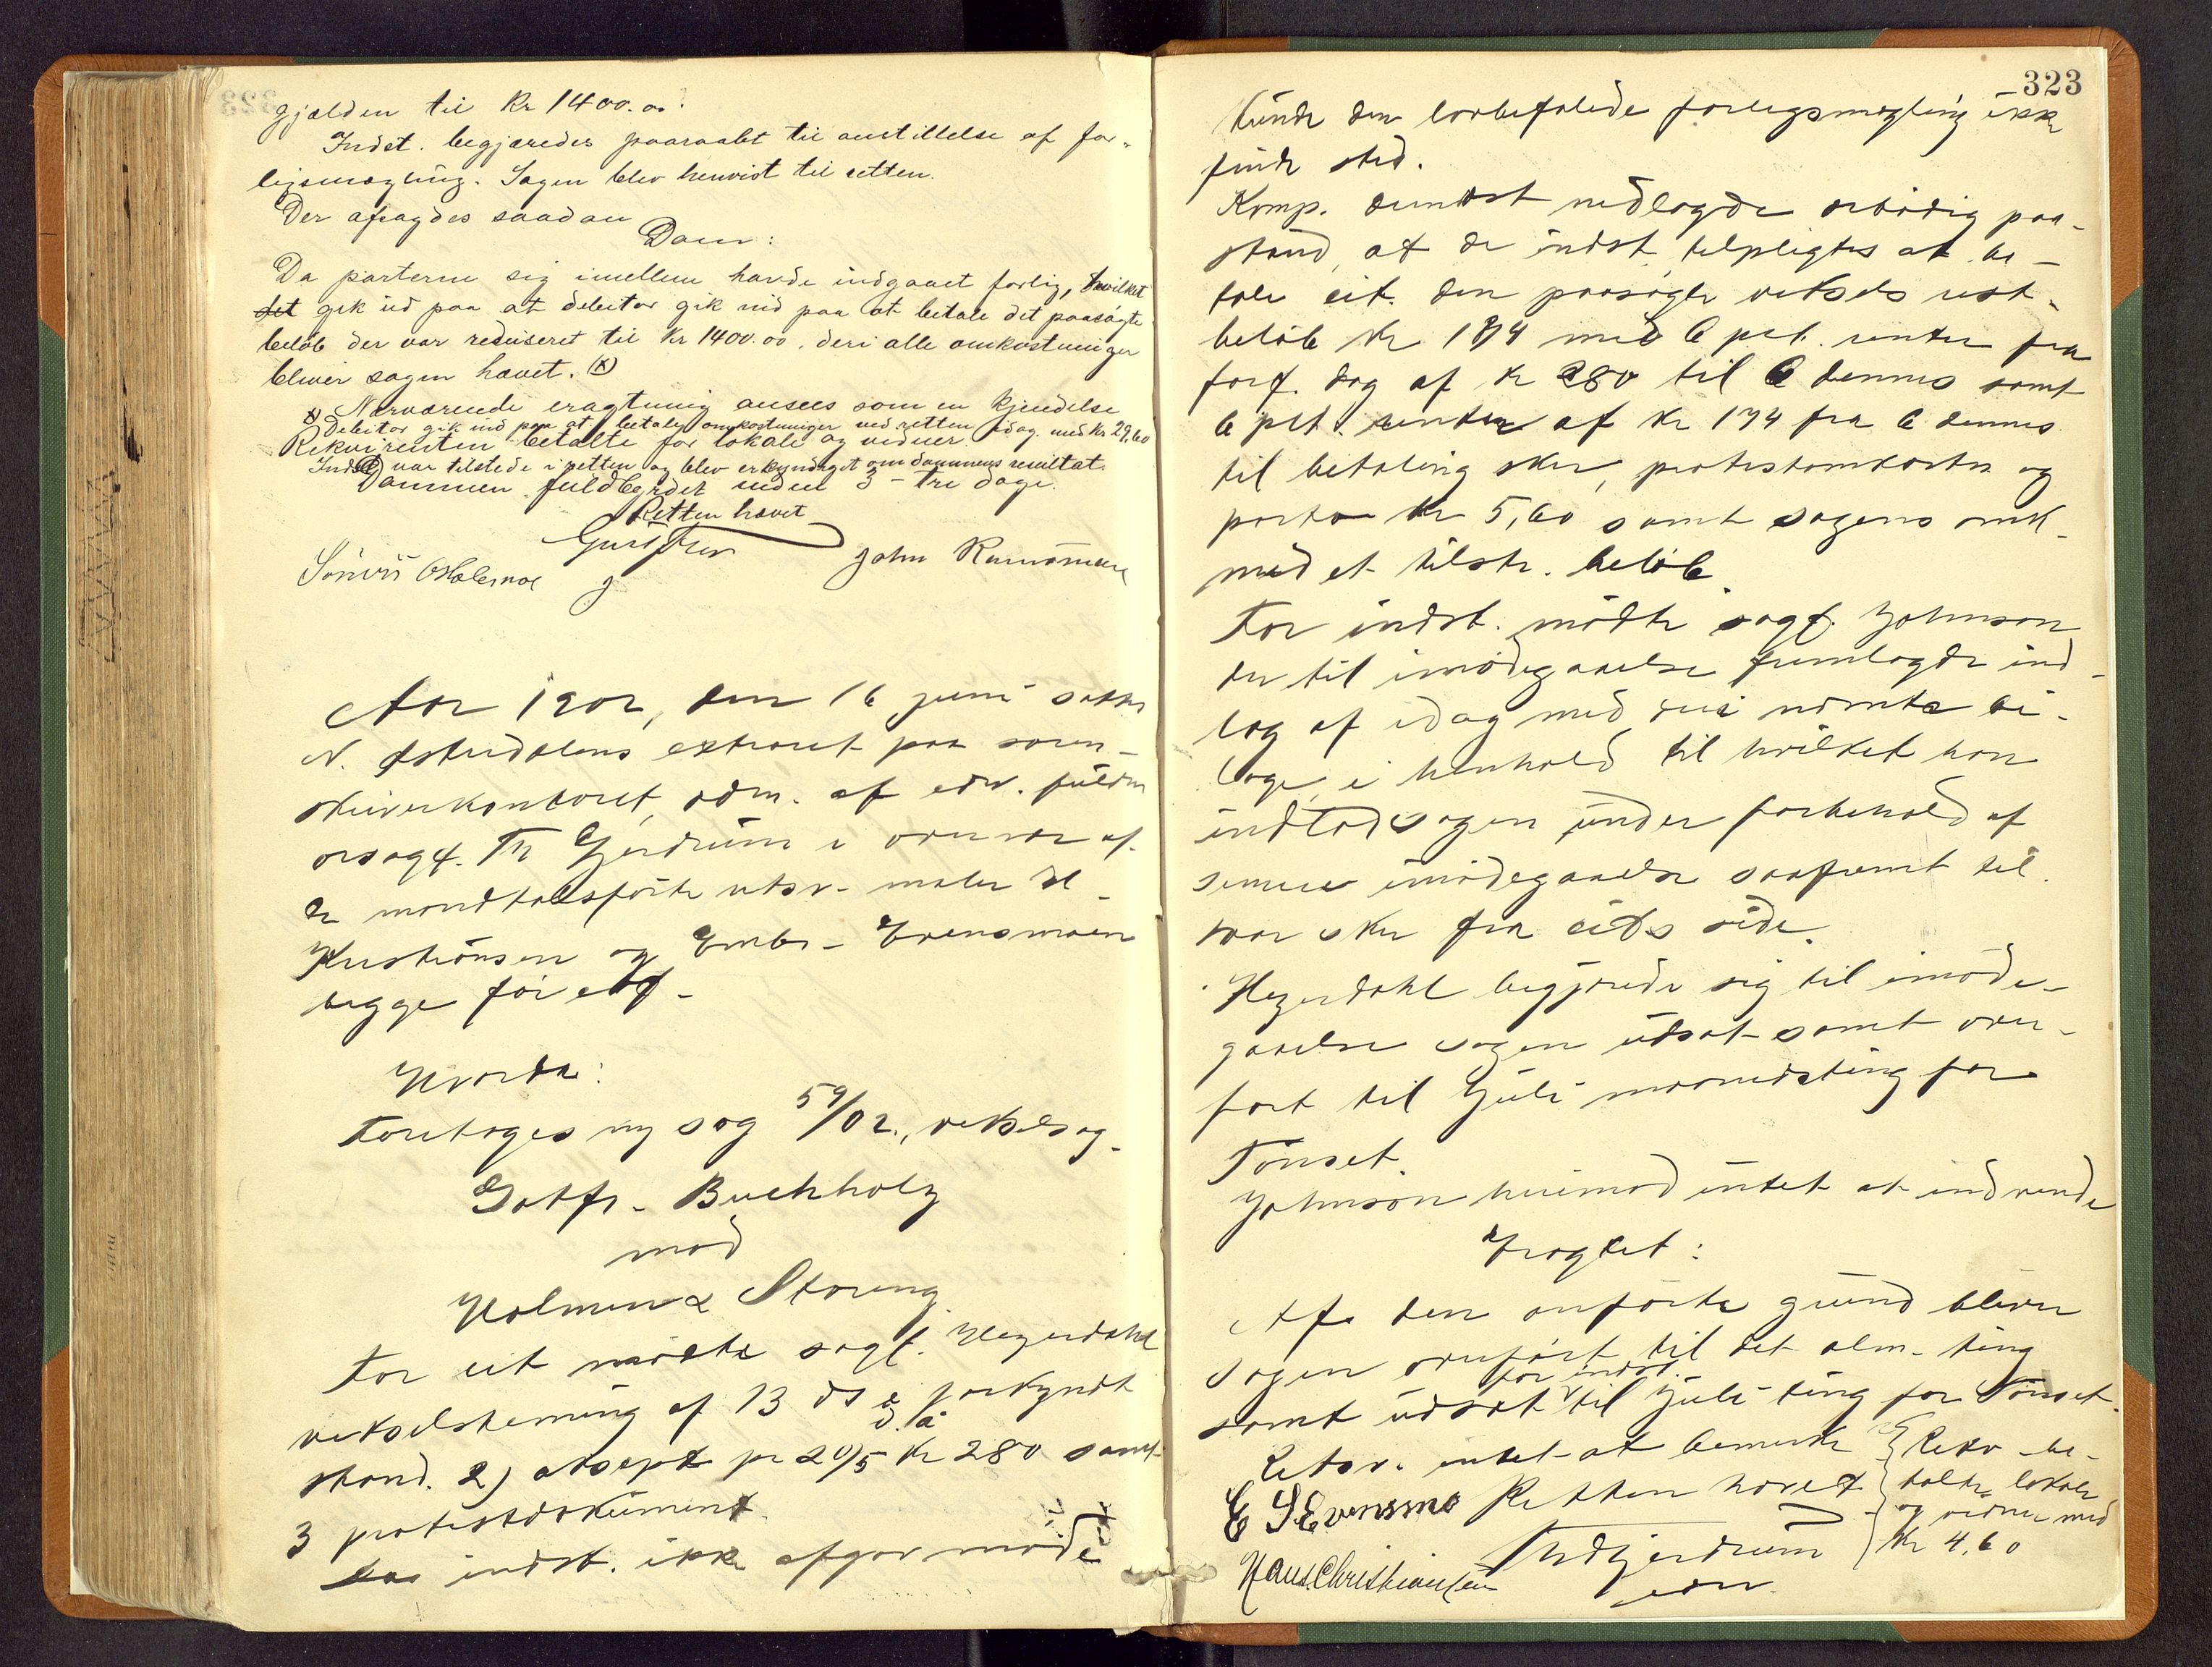 gjælden til Kr 1400.00.
Indst. begjæredes paaraabt til anstillelse af for-
ligsmægling. Sagen blev henvist til retten.
Der afsagdes saadan
Dom:
Da parterne sig imellem havde indgaaet forlig, hvilket
det gik ud paa at debitor gik ind paa at betale det paasagte
beløb der var reduseret til Kr 1400.00. deri alle omkostninger
bliver sagen hævet. (x)
Nærværende eragtning ansees som en kjendelse
x) Debitor gik ind paa at betale omkostninger ved retten idag med Kr 29,60
Rekvirenten betalte for lokale og vidner
Indst var tilstede i retten og blev erkyndiget om dommens resultat.
Dommen fuldbyrdes inden 3 - tre dage.
Retten hævet
John
Aar 1902, den 16 juni sattes
N. Østerdalens extraret paa soren-
skriverkontoret, adm. af edsv. fuldm
orsagf. Th Gjerdrum i overvær af
de mandtalsførte retsv. maler H
Kristiansen og Embr. Evensmoen
begge for edf.
Hvorda:
Foretoges ny sag 59/02., vekselsag.
Gotfr. Buchholz
mod
Holmen & Storeng.
For cit mødte sagf. Heyerdahl
vekselstevning af 13 ds forkyndt
d. å
stand. 2) aksept pr 20/5 Kr 280 samt
3 protestdokument.
Da indst. ikke afgav møde
323
kunde den lovbefalede forligsmægling ikke
finde sted.
Komp. dernæst nedlagde ærbødig paa-
stand, at de indst. tilpligtes at be-
tale cit. den paasagte veksels rest-
beløb Kr 174 med 6 pct. renter fra
forf. dag af Kr 280 til 6 dennes samt
6 pct. renter af Kr 174 fra 6 dennes
til betaling sker, protestomkoster og
porto Kr 5,60 samt sagens omk.
med et tilstr. beløb.
For indst. mødte sagf. Johnson
der til imødegaaelse fremlagde ind-
læg af idag med deri nævnte bi-
lage, i henhold til hvilket han
indlod sagen under forbehold af
senere imødegaaelse saafremt til-
svar sker fra cits side.
Heyerdahl begjærede sig til imøde-
gaaelse sagen udsat samt over-
ført til Juli maanedsting for
Tønset.
Johnson herimod intet at indvende
Eragtet:
Af den anførte grund bliver
sagen overført til det alm. ting
for indst.
samt udsat til Juli ting for Tønset.
Retsv. intet at bemerke
Retten hævet
Rekv. be-
talte lokale
og vidner med
Kr 4,60
E S Evensmo
Th Gjerdrum
edsv.
Hans Christiansen